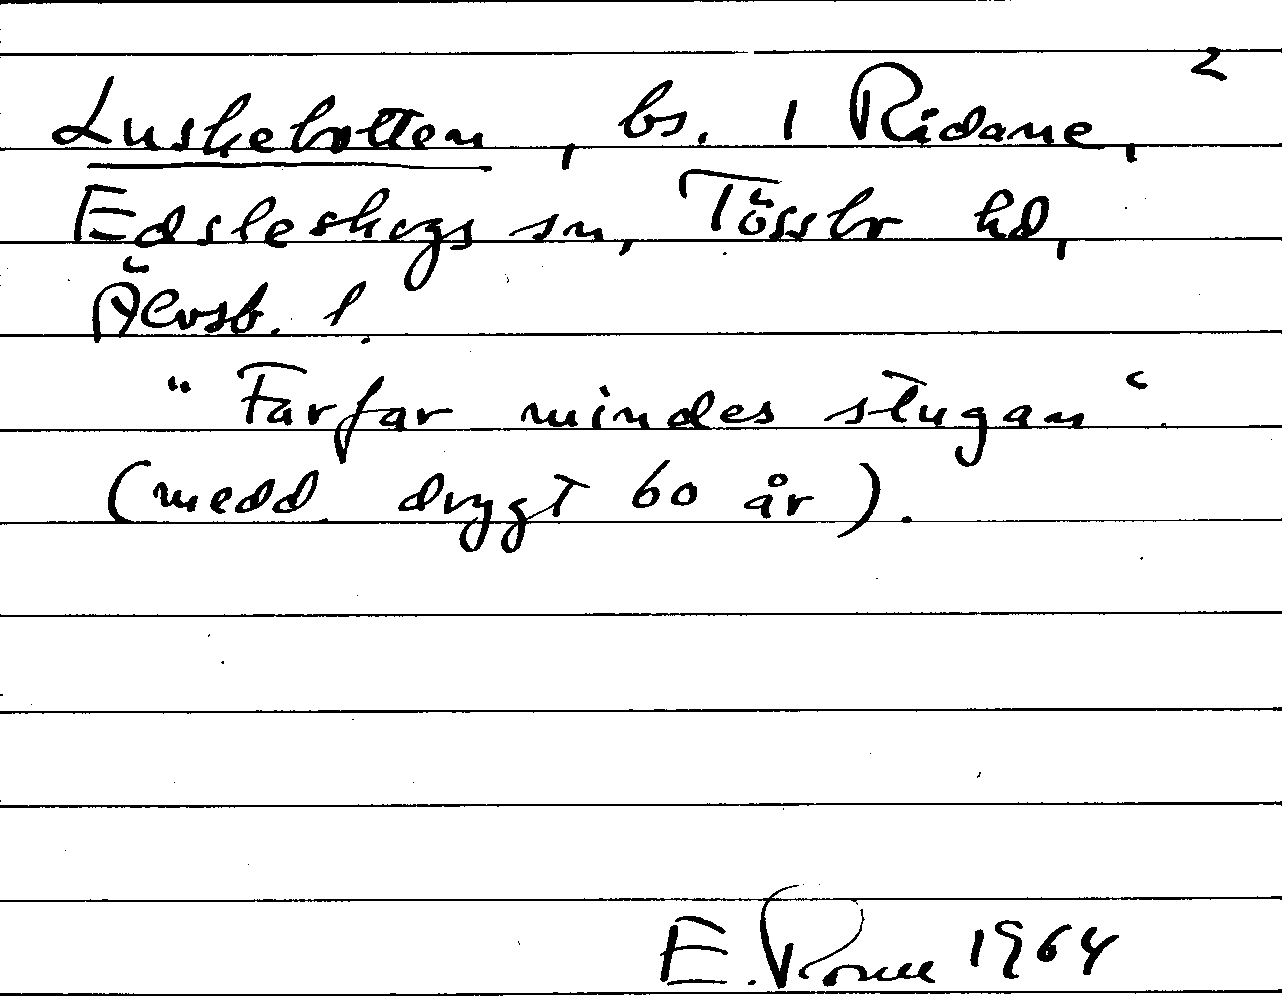 2
Luskebotten, bs. i Ridane,
Edsleskogs sn, Tössbo hd,
Älvsb. l.
"Farfar mindes stugan".
(medd. drygt 60 år).
E. 1964